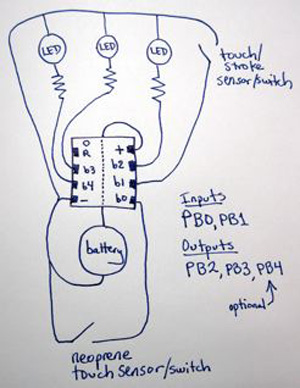 LED
LED
LED
touch/
stroke
sensor/switch
R
+
b3
b2
b4
b1
-
b0
battery
Inputs
PB0, PB1
Outputs
PB2, PB3, PB4
optional
neoprene
touch sensor/switch